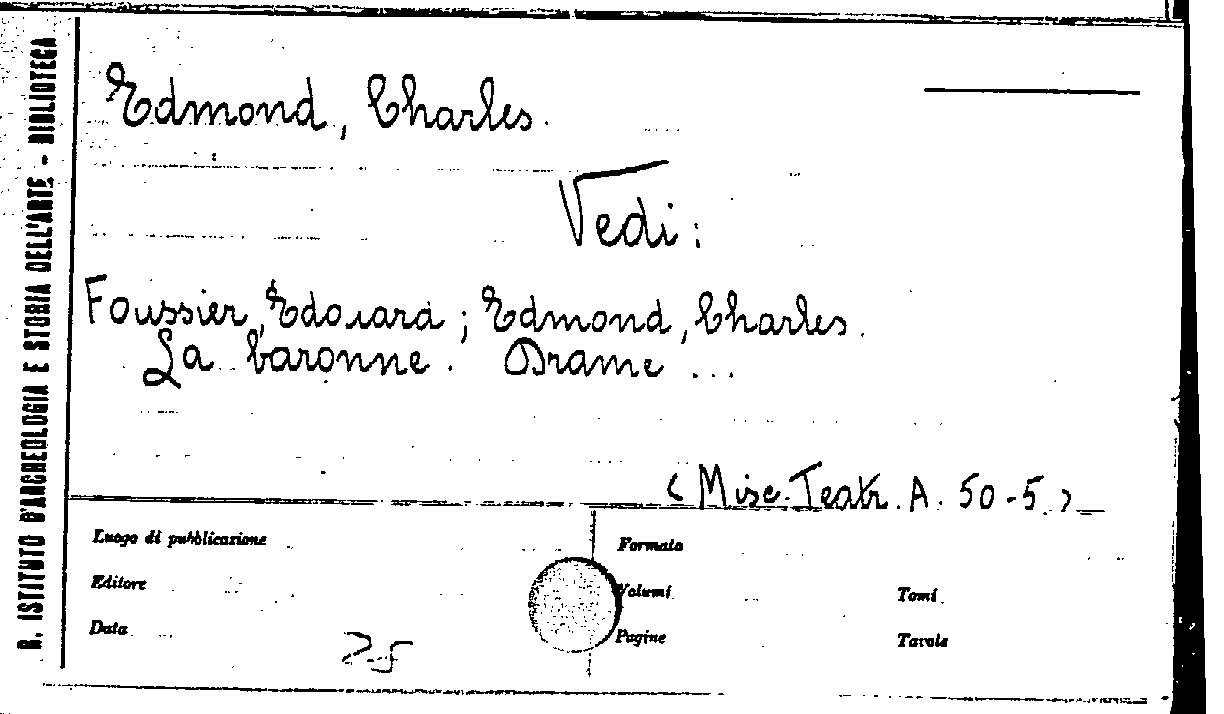 R. ISTITUTO D'ARCHEOLOGIA E STORIA DELL'ARTE - BIBLIOTECA
Edmond, Charles.
Vedi:
Foussier, Edouard; Edmond, Charles.
La baronne. Drame ...
(Misc. Teatr. A. 50-5.)
Luogo di pubblicazione
Formato
Editore
Volumi
Tomi
Data
Pagine
Tavole
25